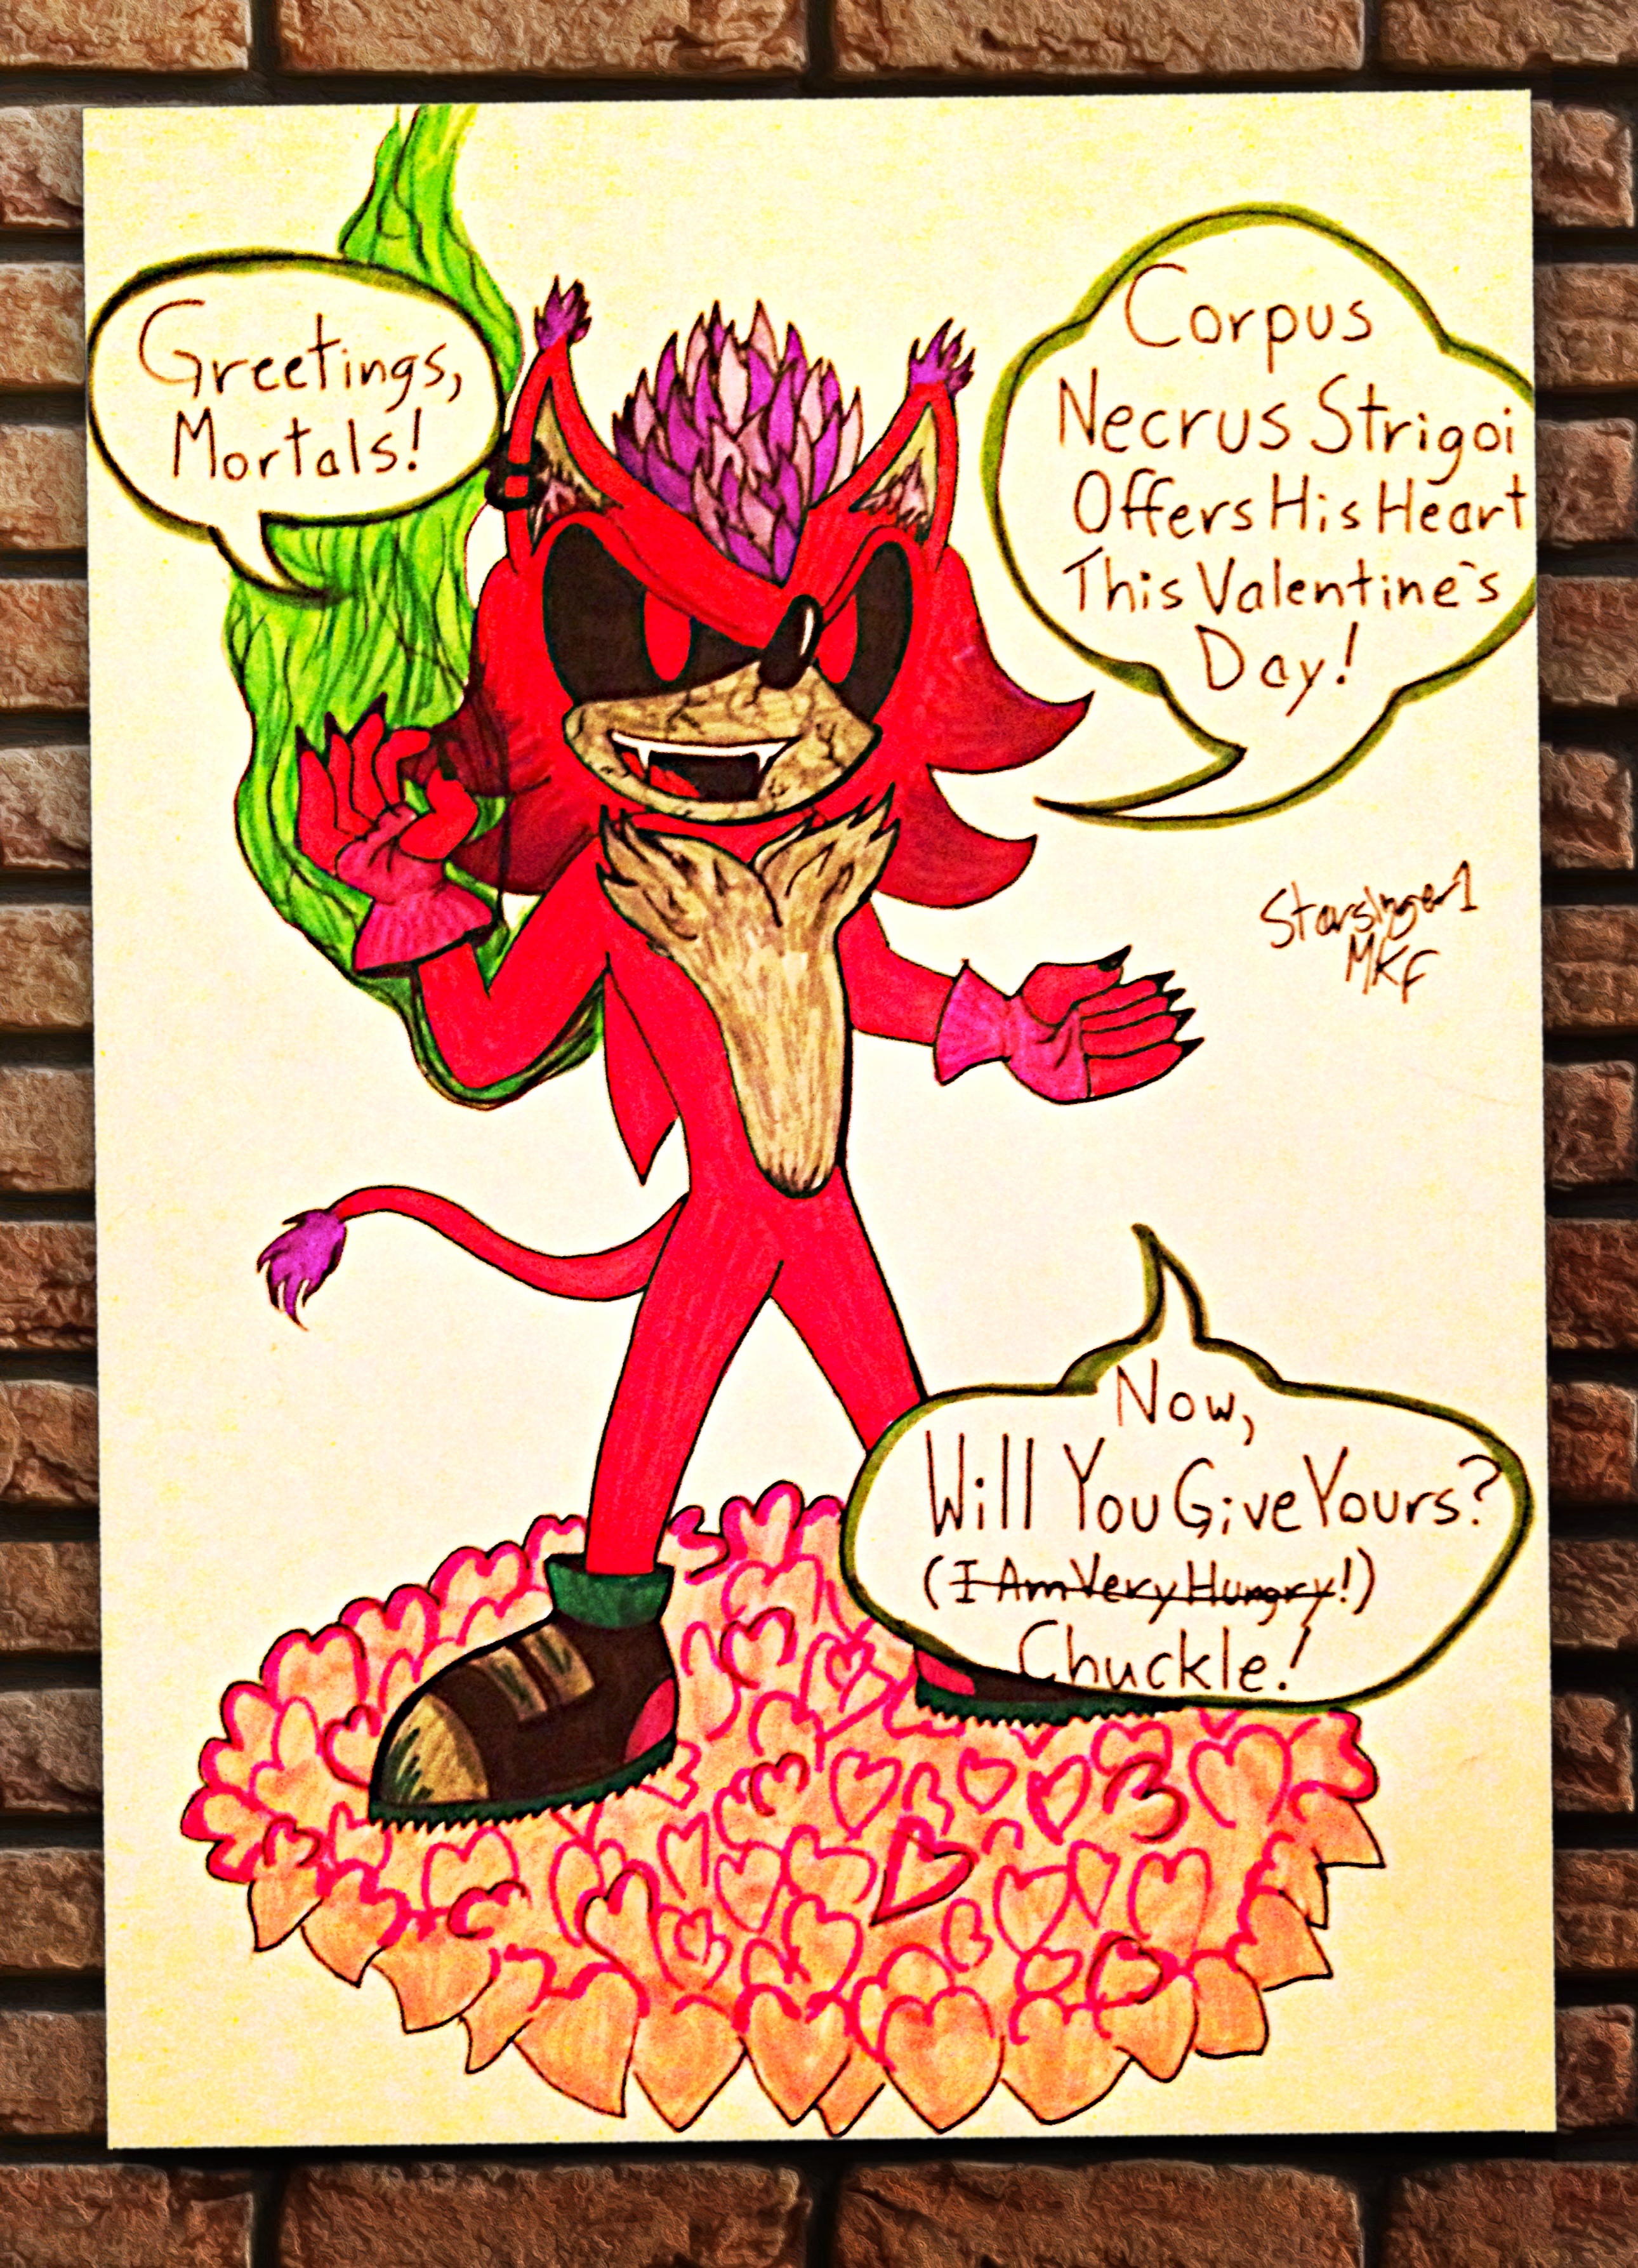 Greetings,
Mortals!
Corpus
Necrus Strigoi
Offers His Heart
This Valentine's
Day!
Starsinger1
MKF
Now,
Will You Give Yours?
(I Am Very Hungry!)
Chuckle!